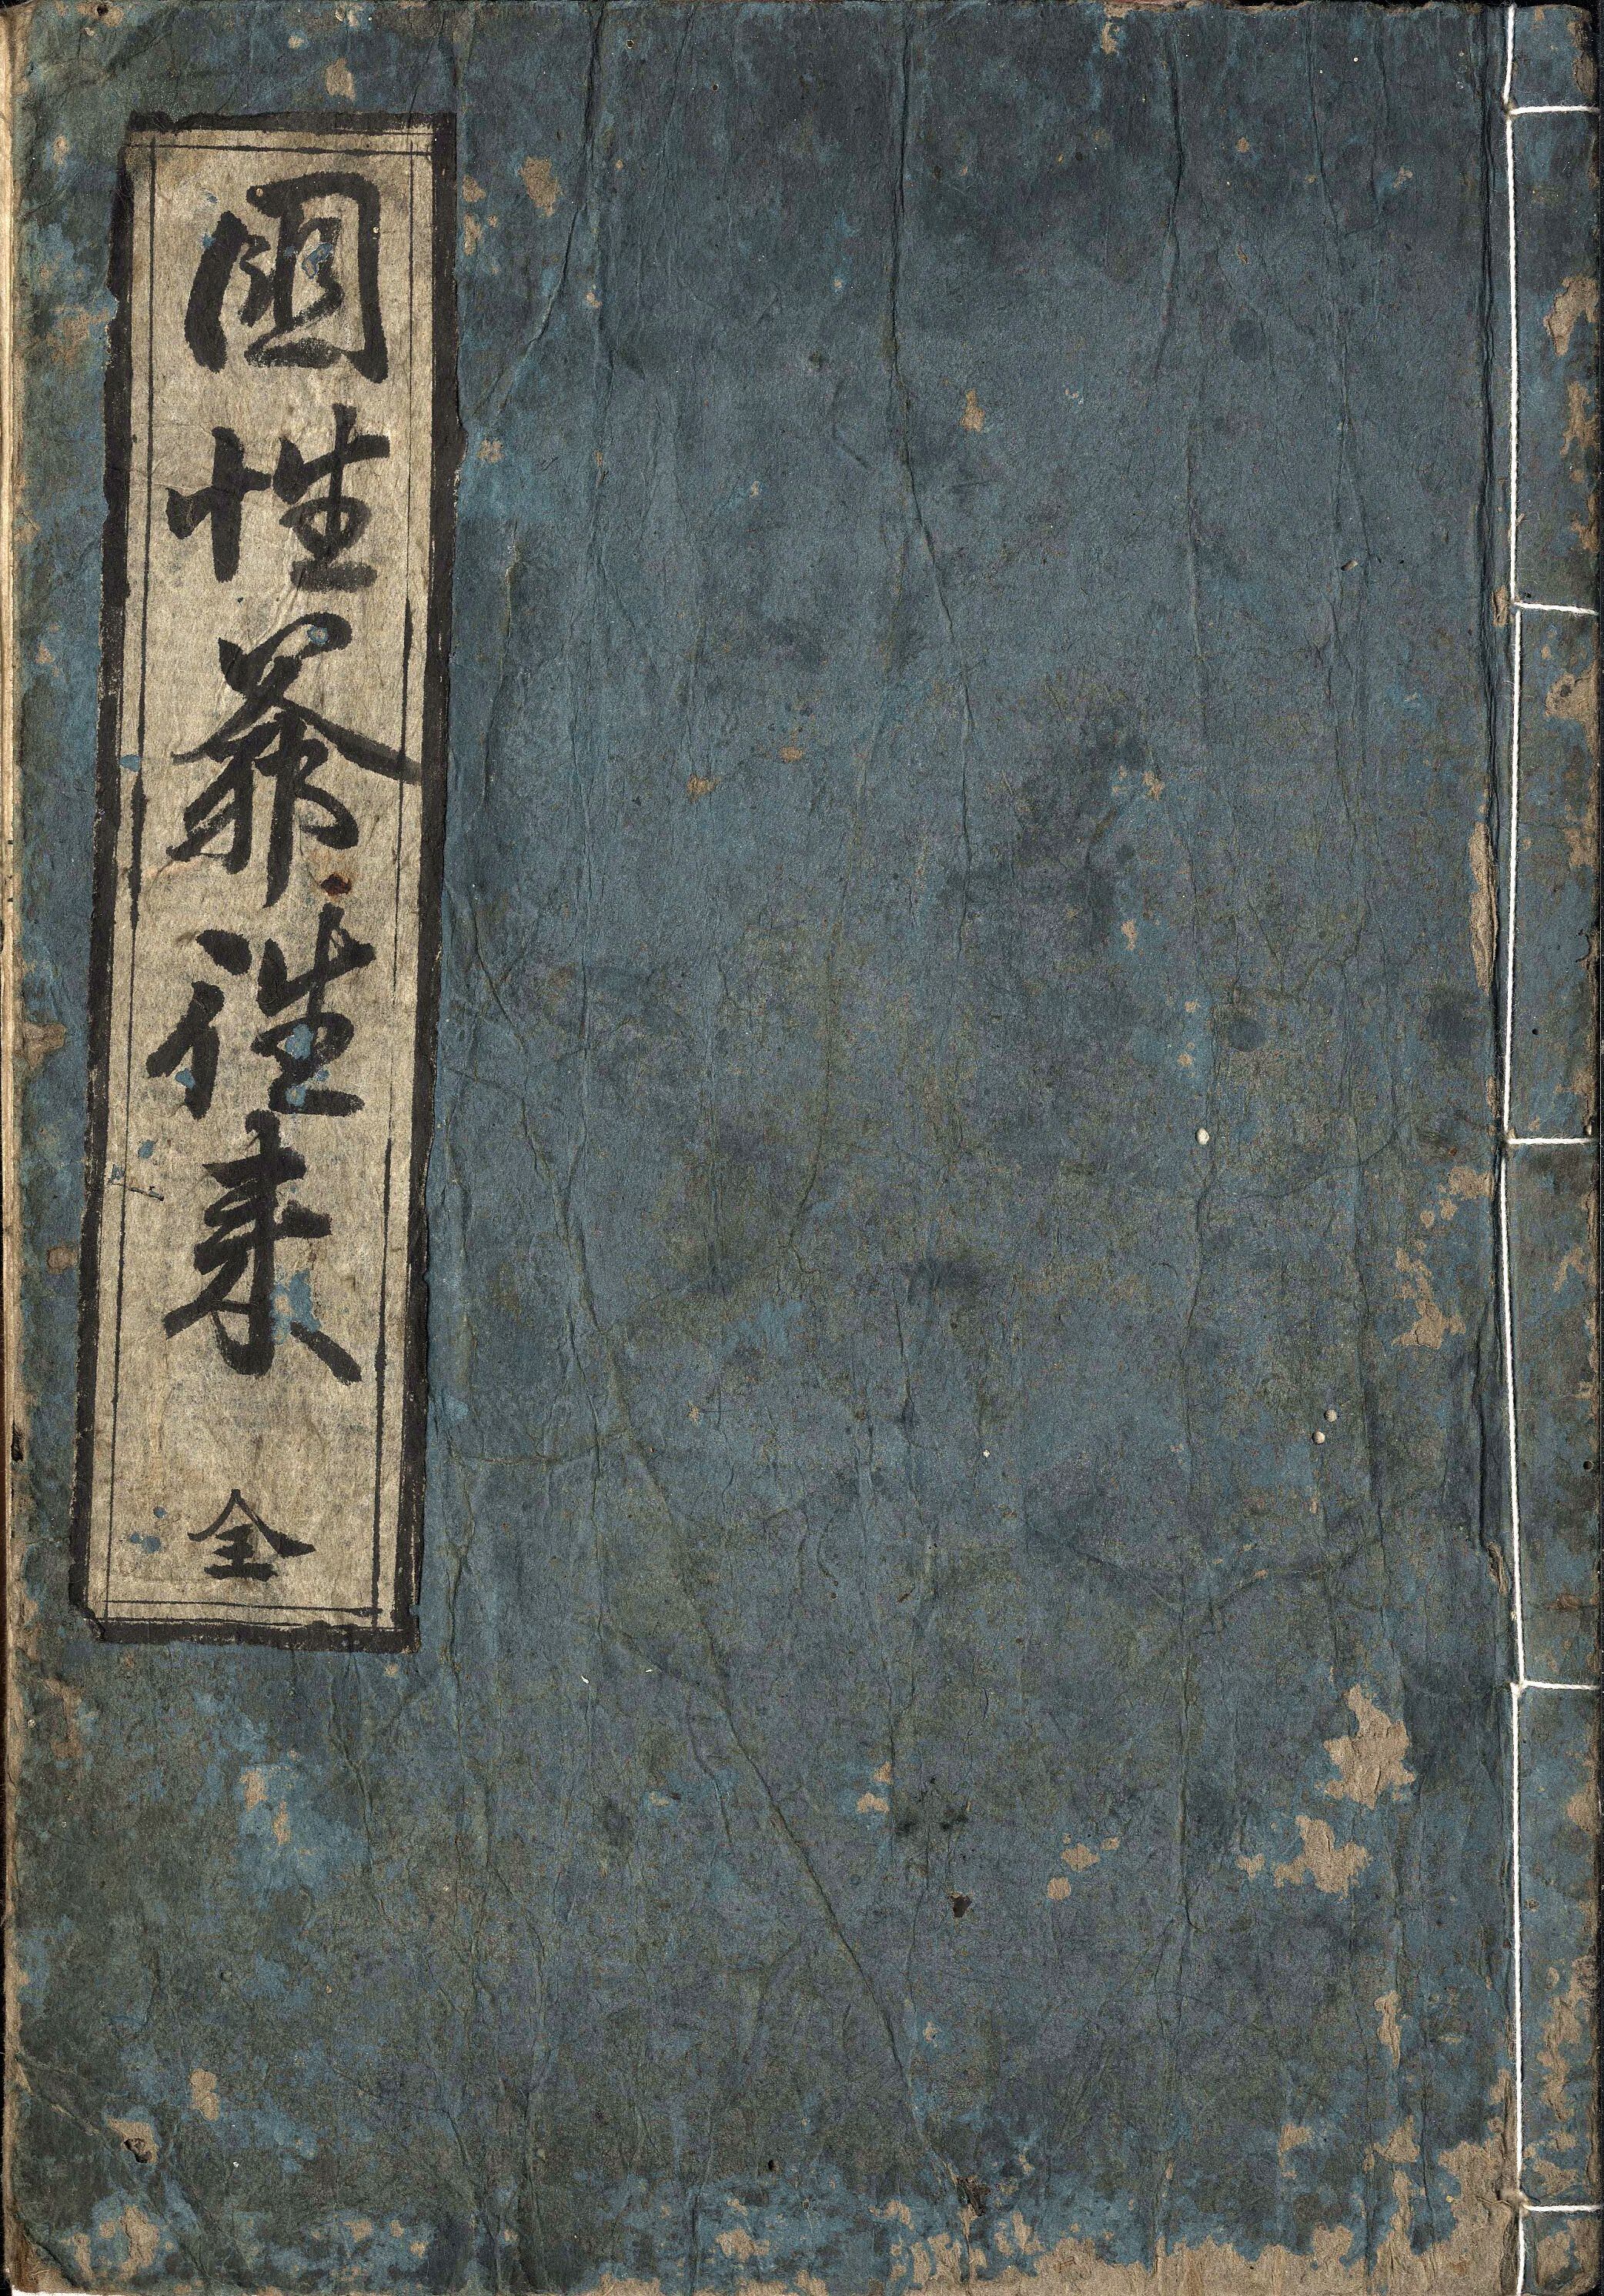 國性爺往来 全